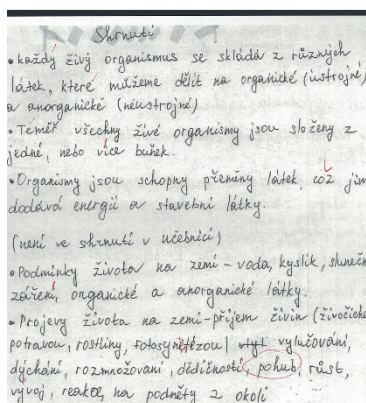 Shrnutí
• každý živý organismus se skládá z různých
látek, které můžeme dělit na organické (ústrojné)
a anorganické (neústrojné)
• Téměř všechny živé organismy jsou složeny z
jedné, nebo více buněk.
• Organismy jsou schopny přeměny látek, což jim
dodává energii a stavební látky.
(není ve shrnutí v učebnici)
• Podmínky života na zemi – voda, kyslík, sluneč
záření, organické a anorganické látky.
• Projevy života na zemi – příjem živin (živočich
potravou, rostliny, fotosyntézou) vylučování,
dýchání, rozmnožování, dědičností, pohub, růst,
vývoj, reakce, na podněty z okolí